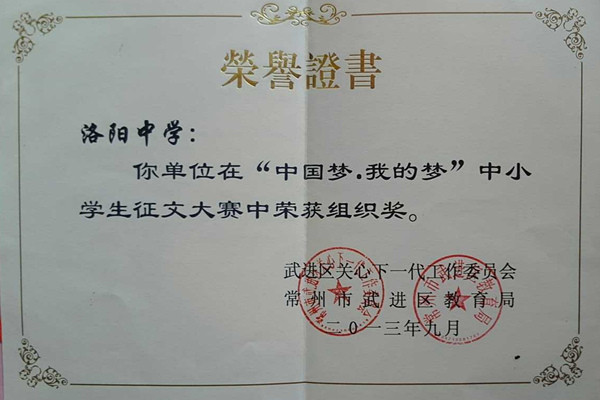 榮譽證書
洛阳中学：
你单位在“中国梦.我的梦”中小
学生征文大赛中荣获组织奖。
武进区关心下一代工作委员会
常州市武进区教育局
二0一三年九月